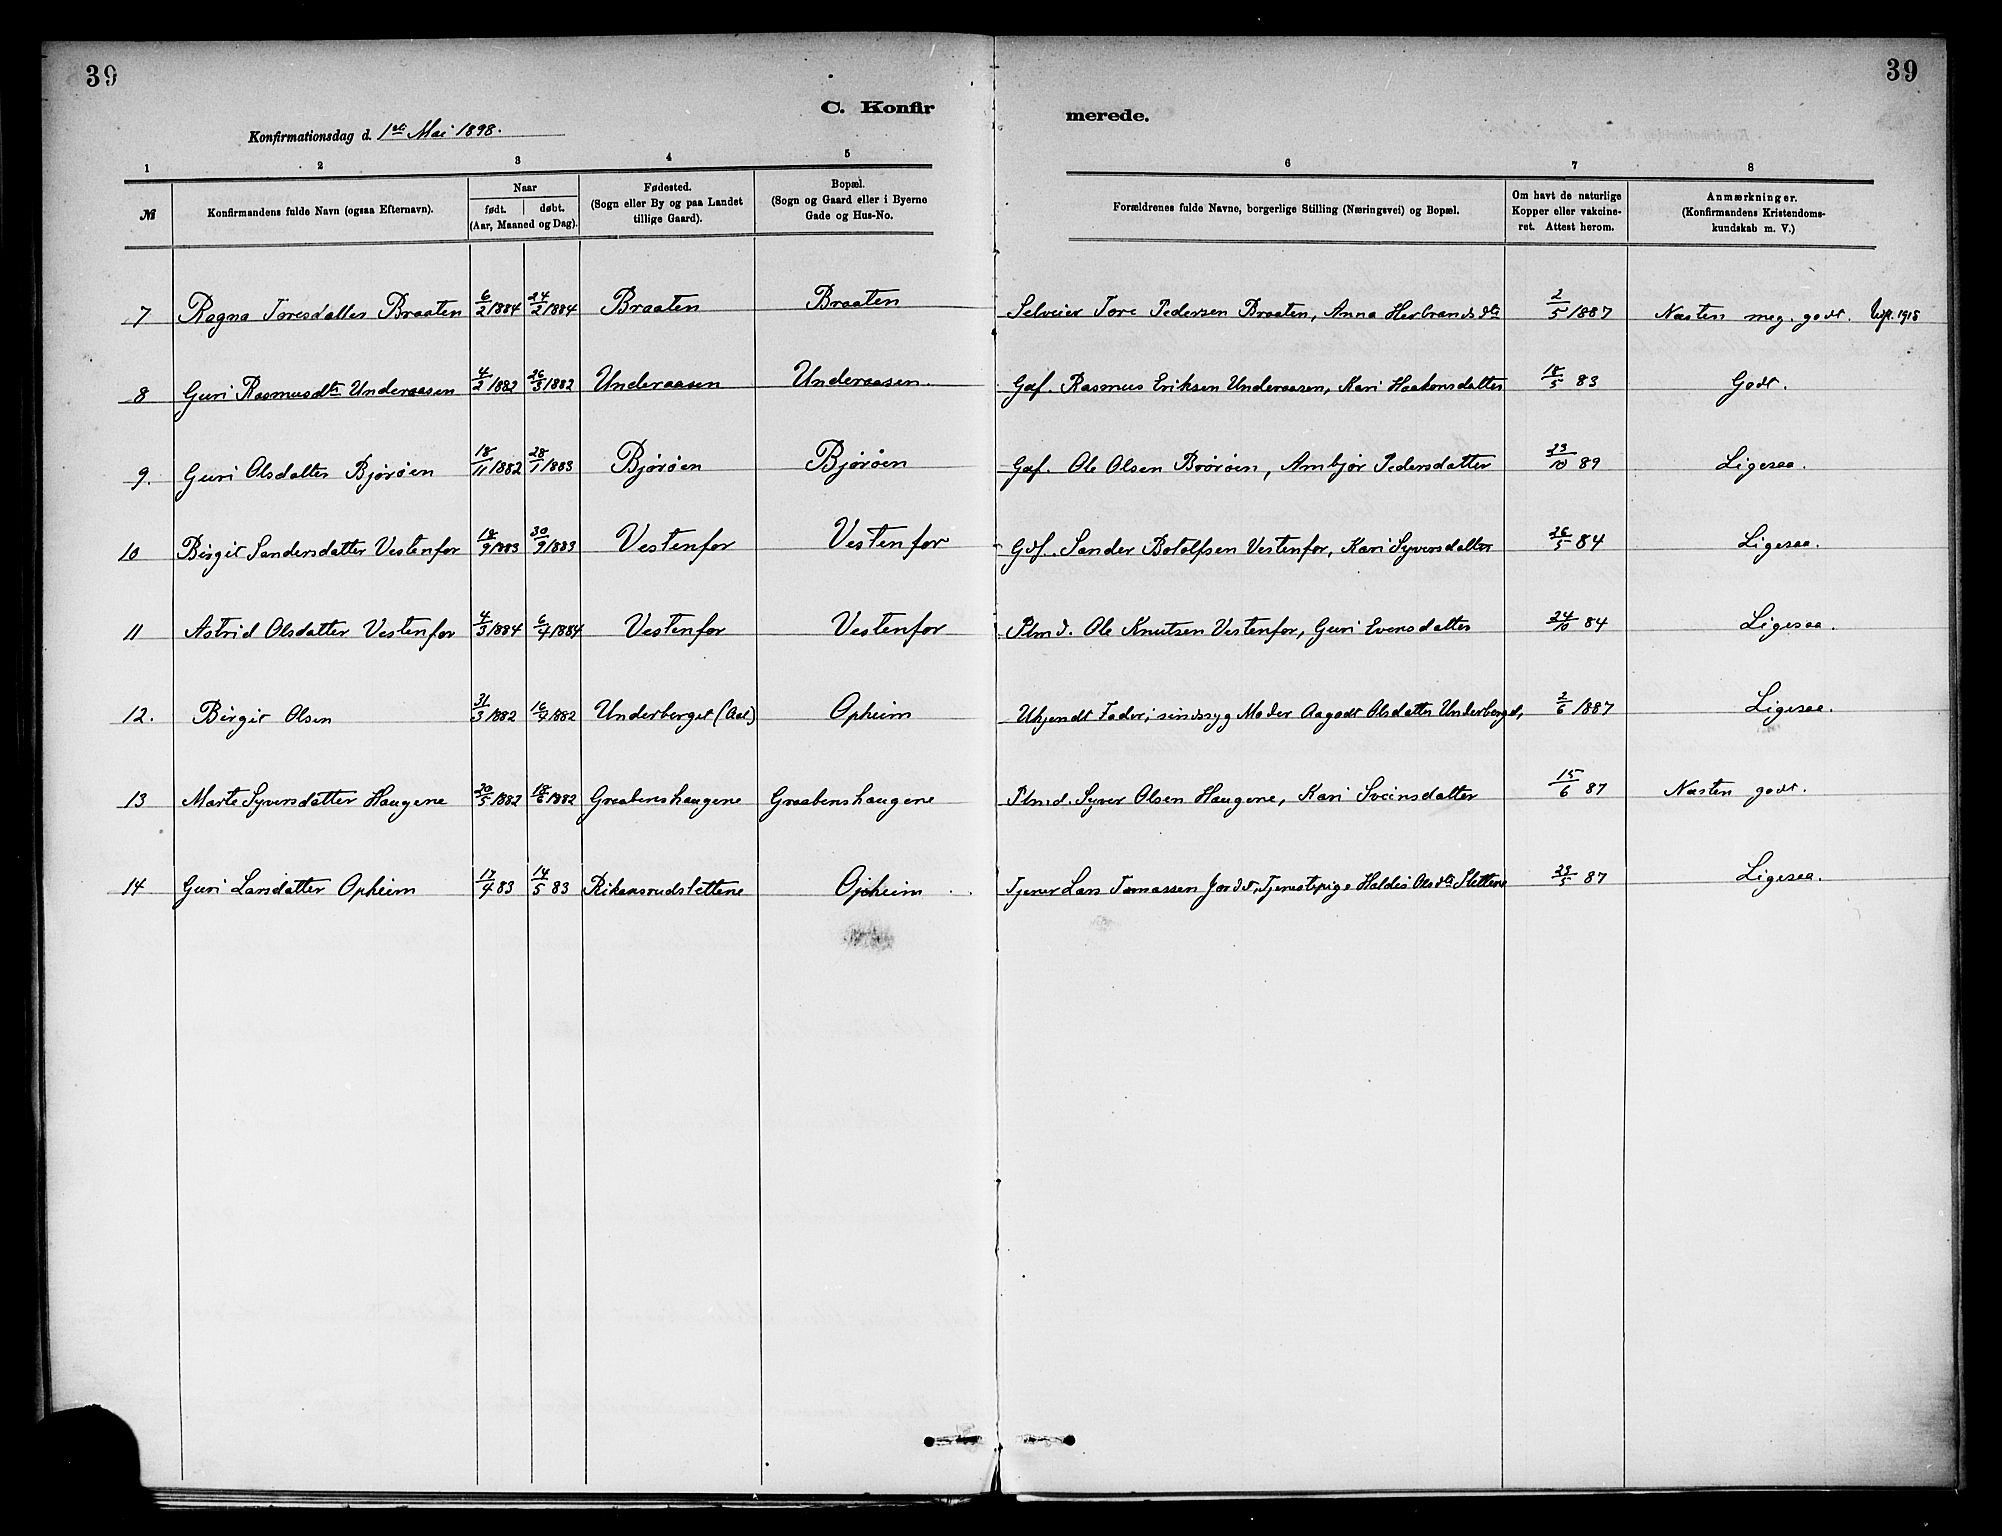 39
39
C. Konfir
merede.
Konfirmationsdag d. 1ste Mai 1898.
1 2 3 4 5 6 7 8
№ Konfirmandens fulde Navn (ogsaa Efternavn). Naar født. døbt. (Aar, Maaned og Dag). Fødested. (Sogn eller By og paa Landet tillige Gaard). Bopæl. (Sogn og Gaard eller i Byerne Gade og Hus-No. Forældrenes fulde Navne, borgerlige Stilling (Næringsvei) og Bopæl. Om havt de naturlige Kopper eller vakcineret. Attest herom. Anmærkninger. (Konfirmandens Kristendomskundskab m. V.)
7 Ragna Toresdatter Braaten 6/2 1884 24/2 1884 Braaten Braaten Selveier Tore Pedersen Braaten, Anna Herbrandsdtr 2/5 1887 Næsten meg. godt. 1918
8 Guri Rasmusdtr Underaasen 4/2 1882 26/3 1882 Underaasen Underaasen. Gdf. Rasmus Eriksen Underaasen, Kari Haakonsdatter 18/5 83 Godt.
9. Guri Olsdatter Bjørøen 18/11 1882 28/1 1883 Bjørøen Bjørøen Gdf. Ole Olsen Brørøen, Ambjør Pedersdatter 23/10 89 Ligesaa.
10 Birgit Sandersdatter Vestenfor 18/9 1883 30/9 1883 Vestenfor Vestenfor Gdf. Sander Botolfsen Vestenfor, Kari Syversdatter 26/5 84 Ligesaa.
11 Astrid Olsdatter Vestenfor 4/3 1884 6/4 1884 Vestenfor Vestenfor Plmd. Ole Knutsen Vestenfor, Guri Evensdatter 24/10 84 Ligesaa.
12. Birgit Olsen 31/3 1882 16/4 1882 Underberget (Aal) Opheim Ukjendt Fader; sindssyg Moder Aagodt Olsdatter Underberget, 2/6 1887 Ligesaa.
13 Marte Syversdatter Haugene 20/5 1882 18/6 1882 Graabenshaugene Graabenshaugene Plmd. Syver Olsen Haugene, Kari Sveinsdatter 15/6 87 Næsten godt.
14 Guri Larsdatter Opheim 17/4 83 14/5 83 Rikansrudslettene Opheim Tjener Lars Tomassen Jordt, Tjenestepige Haldis Olsdtr Slettene 23/5 87 Ligesaa.